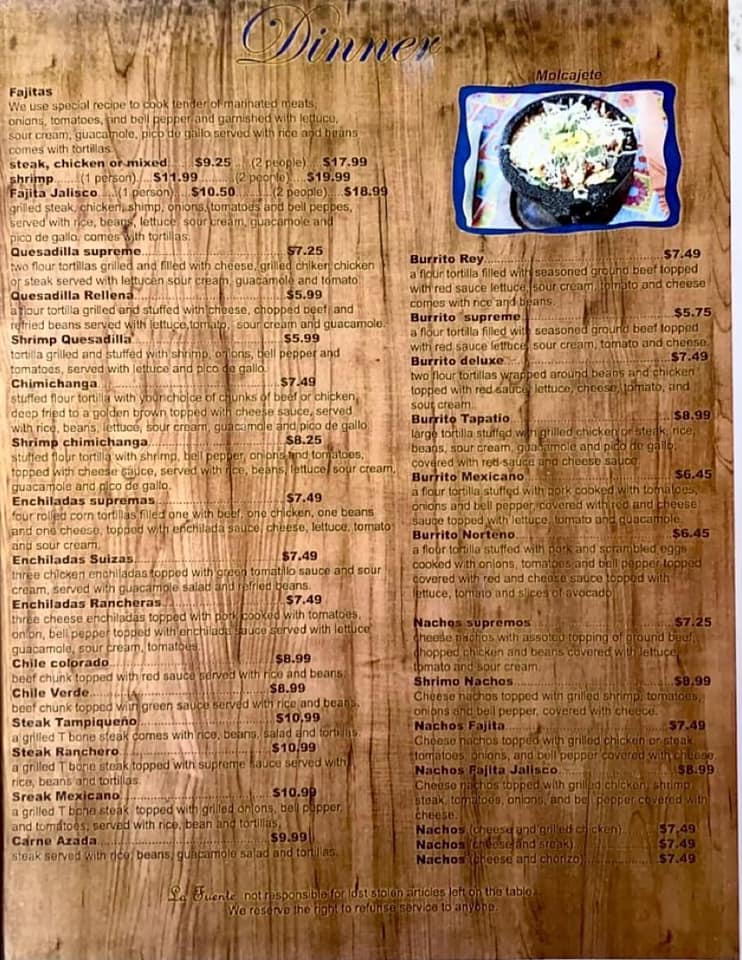 Dinner
Fajitas
We use special recipe to cook tender of marinated meats,
onions, tomatoes, and bell pepper and garnished with lettuce,
sour cream, guacamole, pico de gallo served with rice and beans
comes with tortillas.
steak, chicken or mixed.......$9.25.....(2 people)....$17.99
shrimp.......(1 person)....$11.99..........(2 people)....$19.99
Fajita Jalisco.....(1 person)....$10.50.........(2 people)....$18.99
grilled steak, chicken, shimp, onions, tomatoes and bell peppes,
served with rice, beans, lettuce sour cream, guacamole and
pico de gallo, comes with tortillas.
Quesadilla supreme.......$7.25
two flour tortillas grilled and filled with cheese, grilled chiken chicken
or steak served with lettucen sour cream, guacamole and tomato
Quesadilla Rellena.......$5.99
a flour tortilla grilled and stuffed with cheese, chopped beef, and
refried beans served with lettuce,tomato, sour cream and guacamole.
Shrimp Quesadilla.......$5.99
tortilla grilled and stuffed with shrimp, onions, bell pepper and
tomatoes, served with lettuce and pico de gallo.
Chimichanga.......$7.49
stuffed flour tortilla with your choice of chunks of beef or chicken,
deep fried to a golden brown topped with cheese sauce, served
with rice, beans, lettuce, sour cream, guacamole and pico de gallo
Shrimp chimichanga.......$8.25
stuffed flour tortilla with shrimp, bell pepper, onions and tomatoes,
topped with cheese sauce, served with rice, beans, lettuce, sour cream,
guacamole and pico de gallo.
Enchiladas supremas.......$7.49
four rolled corn tortillas filled one with beef, one chicken, one beans
and one cheese, topped with enchilada sauce, cheese, lettuce, tomato
and sour cream.
Enchiladas Suizas.......$7.49
three chicken enchiladas topped with green tomatillo sauce and sour
cream, served with guacamole salad and refried beans.
Enchiladas Rancheras.......$7.49
three cheese enchiladas topped with pork cooked with tomatoes,
onion, bell pepper topped with enchilada sauce served with lettuce
guacamole, sour cream, tomatoes.
Chile colorado.......$8.99
beef chunk topped with red sauce served with rice and beans.
Chile Verde.......$8.99
beef chunk topped with green sauce served with rice and beans.
Steak Tampiqueño.......$10,99
a grilled T bone steak comes with rice, beans, salad and tortillas.
Steak Ranchero.......$10.99
a grilled T bone steak topped with supreme sauce served with
rice, beans and tortillas.
Sreak Mexicano.......$10.99
a grilled T bone steak, topped with grilled onions, bell pepper,
and tomatoes, served with rice, bean and tortillas.
Carne Azada.......$9.99
steak served with rice, beans, guacamole salad and tortillas.
Molcajete
Burrito Rey.......$7.49
a flour tortilla filled with seasoned ground beef topped
with red sauce lettuce, sour cream, tomato and cheese
comes with rice and beans.
Burrito supreme.......$5.75
a flour tortilla filled with seasoned ground beef topped
with red sauce lettuce, sour cream, tomato and cheese.
Burrito deluxe.......$7.49
two flour tortillas wrapped around beans and chicken
topped with red sauce, lettuce, cheese, tomato, and
sour cream.
Burrito Tapatio.......$8.99
large tortilla stuffed with grilled chicken or steak, rice,
beans, sour cream, guacamole and pico de gallo,
covered with red sauce and cheese sauce.
Burrito Mexicano.......$6.45
a flour tortilla stuffed with pork cooked with tomatoes,
onions and bell pepper, covered with red and cheese
sauce topped with lettuce, tomato and guacamole.
Burrito Norteno.......$6.45
a flour tortilla stuffed with pork and scrambled eggs
cooked with onions, tomatoes and bell pepper topped
covered with red and cheese sauce topped with
lettuce, tomato and slices of avocado
Nachos supremos.......$7.25
cheese nachos with assoted topping of ground beef,
chopped chicken and beans covered with lettuce,
tomato and sour cream.
Shrimo Nachos.......$8,99
Cheese nachos topped with grilled shrimp, tomatoes,
onions and bell pepper, covered with cheese.
Nachos Fajita.......$7.49
Cheese nachos topped with grilled chicken or steak,
tomatoes, onions, and bell pepper covered with cheese
Nachos Fajita Jalisco.......$8.99
Cheese nachos topped with grilled chicken, shrimp
steak, tomatoes, onions, and bell pepper covered with
cheese.
Nachos (cheese and grilled chicken).......$7,49
Nachos (cheese and sreak).......$7.49
Nachos (cheese and chorizo).......$7.49
La Fuente not responsible for lost stolen articles left on the table.
We reserve the right to refurise service to anyone.